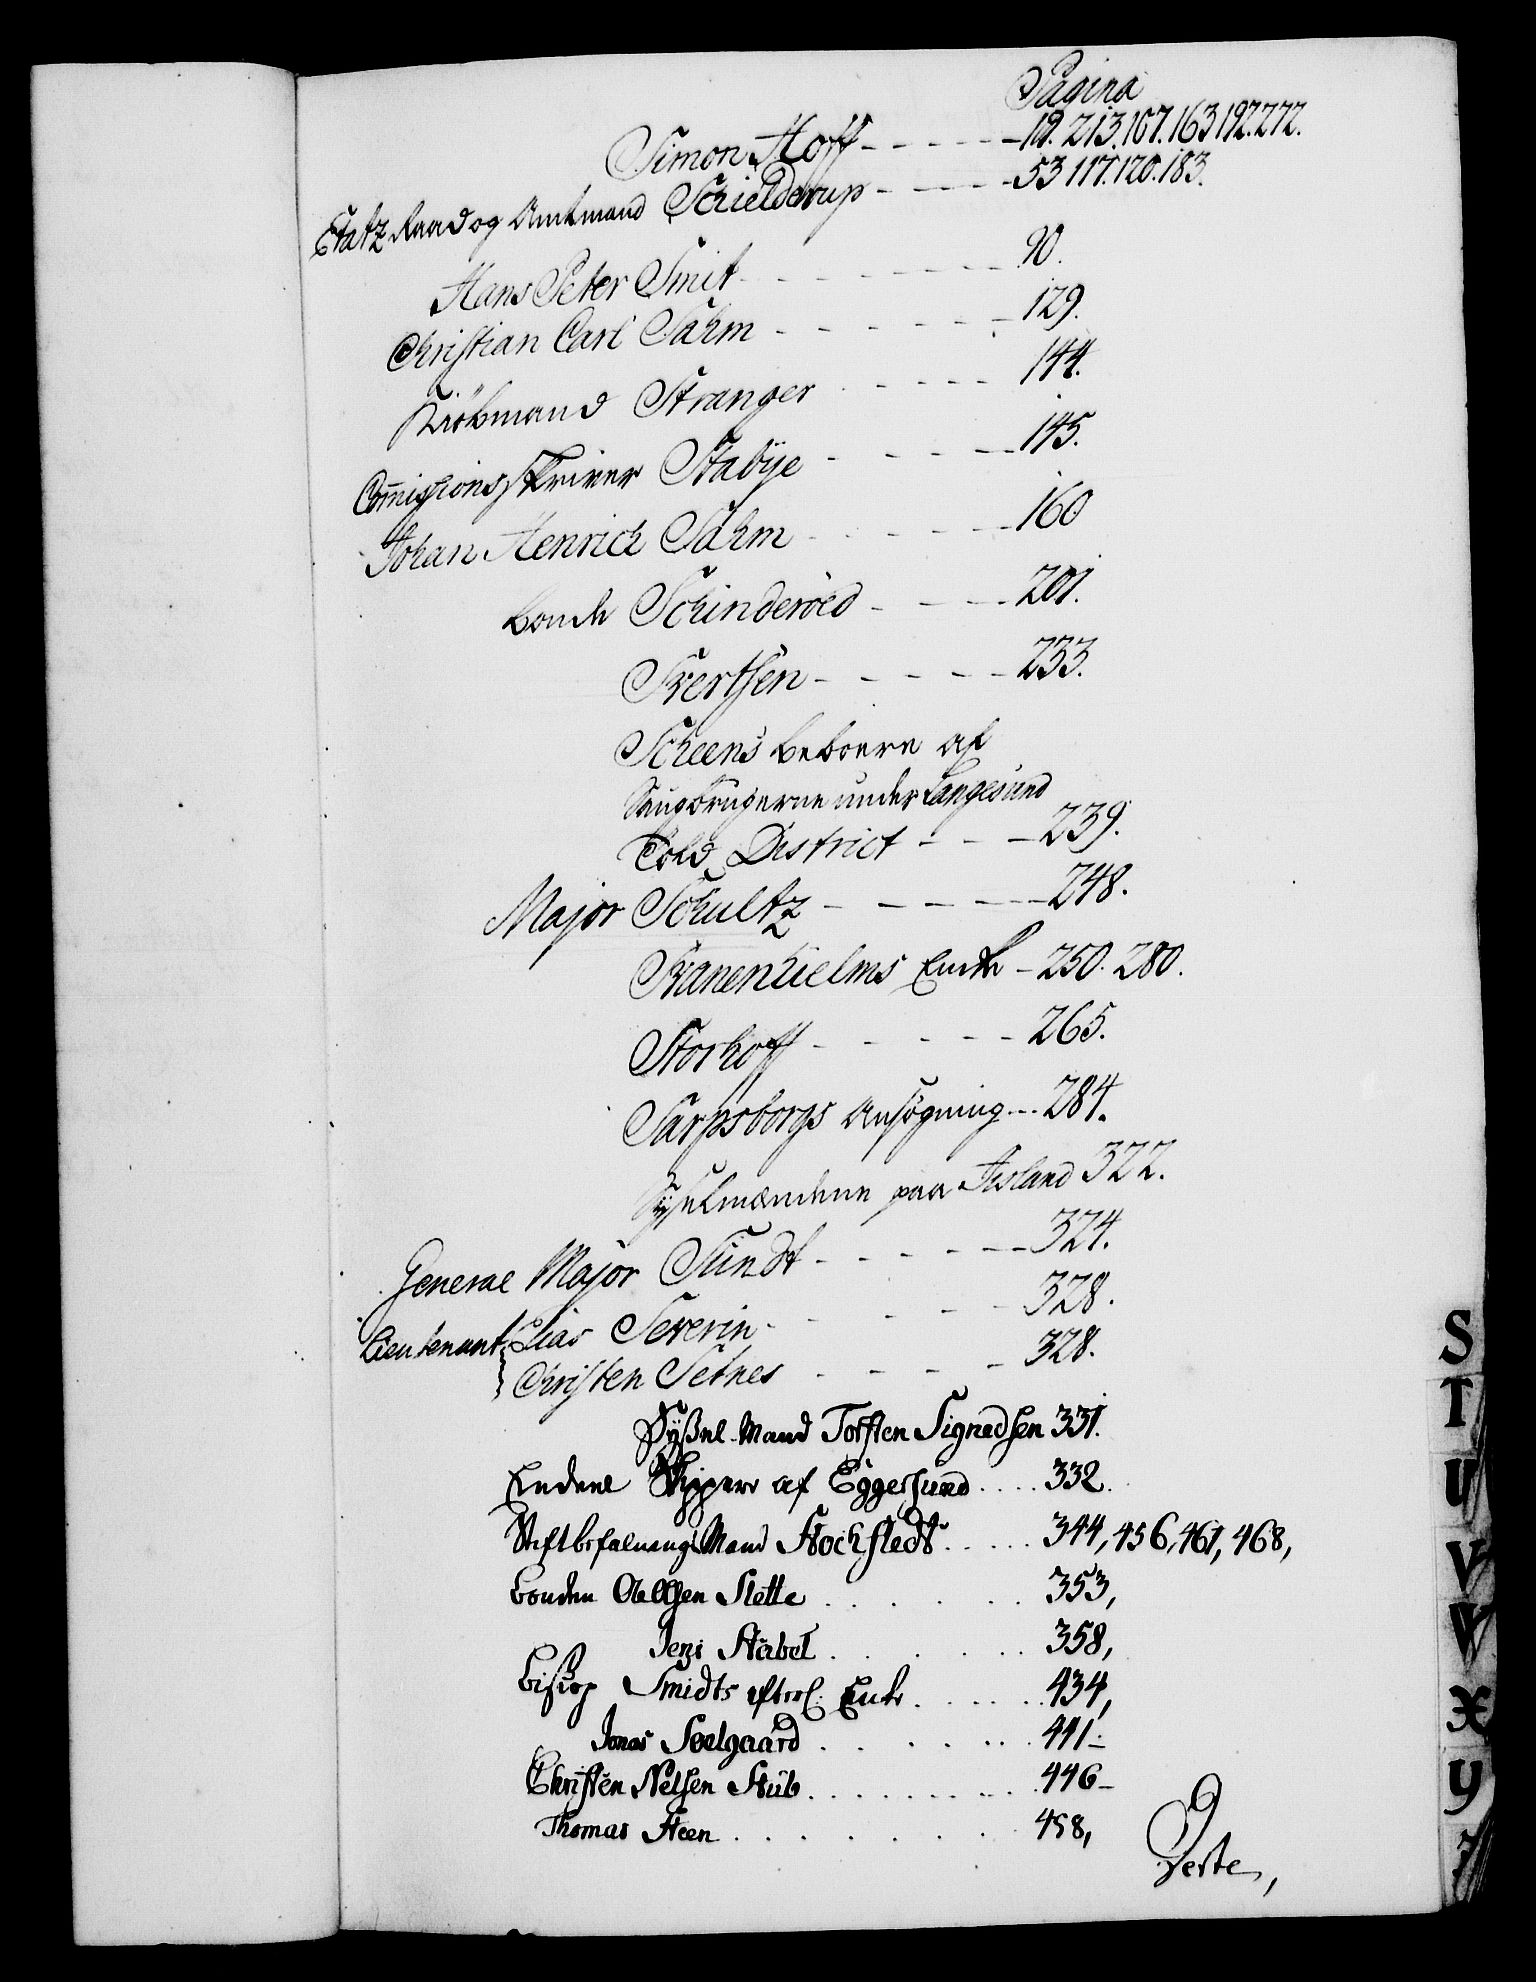 Pagina
Simon Hoff - - - - - 19. 213. 167. 163 192. 272.
Etatz Raad og Amtmand Schielderup - - - - 53 117. 120. 183.
Hans Peter Smit - - - - - - 90.
Christian Carl Sahm - - - - - - 129.
Kiöbmand Stranger - - - - - 144.
Commissions skriver Stabye - - - - - 145.
Johan Henrich Sahm - - - - - 160
bonde Schinderöed - - - - 201.
Svertsen - - - - - 233.
Scheens beboere af
Saugbrugerne under Langesund
Told District - - - 239.
Major Schultz - - - - - 248.
Svanenhielms Enche - 250. 280.
Storhoff - - - - - 265.
Sarpsborgs Ansøgning - - - 284.
Sysselmændene paa Island 322.
General Major Sundt - - - - - 324.
Lieutenant Elias Severin - - - - 328.
Christen Setnes - - - - 328.
Syssel-Mand Torsten Sigvedsen 331.
Endeel Skippere af Eggersund . . . . 332.
Stiftbefalnings Mand Stockfledt . . . . . 344, 456, 461, 468,
bonden Slette . . . . . . 353,
Jens Stabel . . . . . . 358,
bishop Smidts efterl. Enke . . . . . . 434,
Jonas Søelgaard . . . . . . 441-
Christen Nelsen Stub . . . . . . . . 446-
Thomas Steen . . . . . . . 458,
Verte,
S
T
U
V
W
X
Y